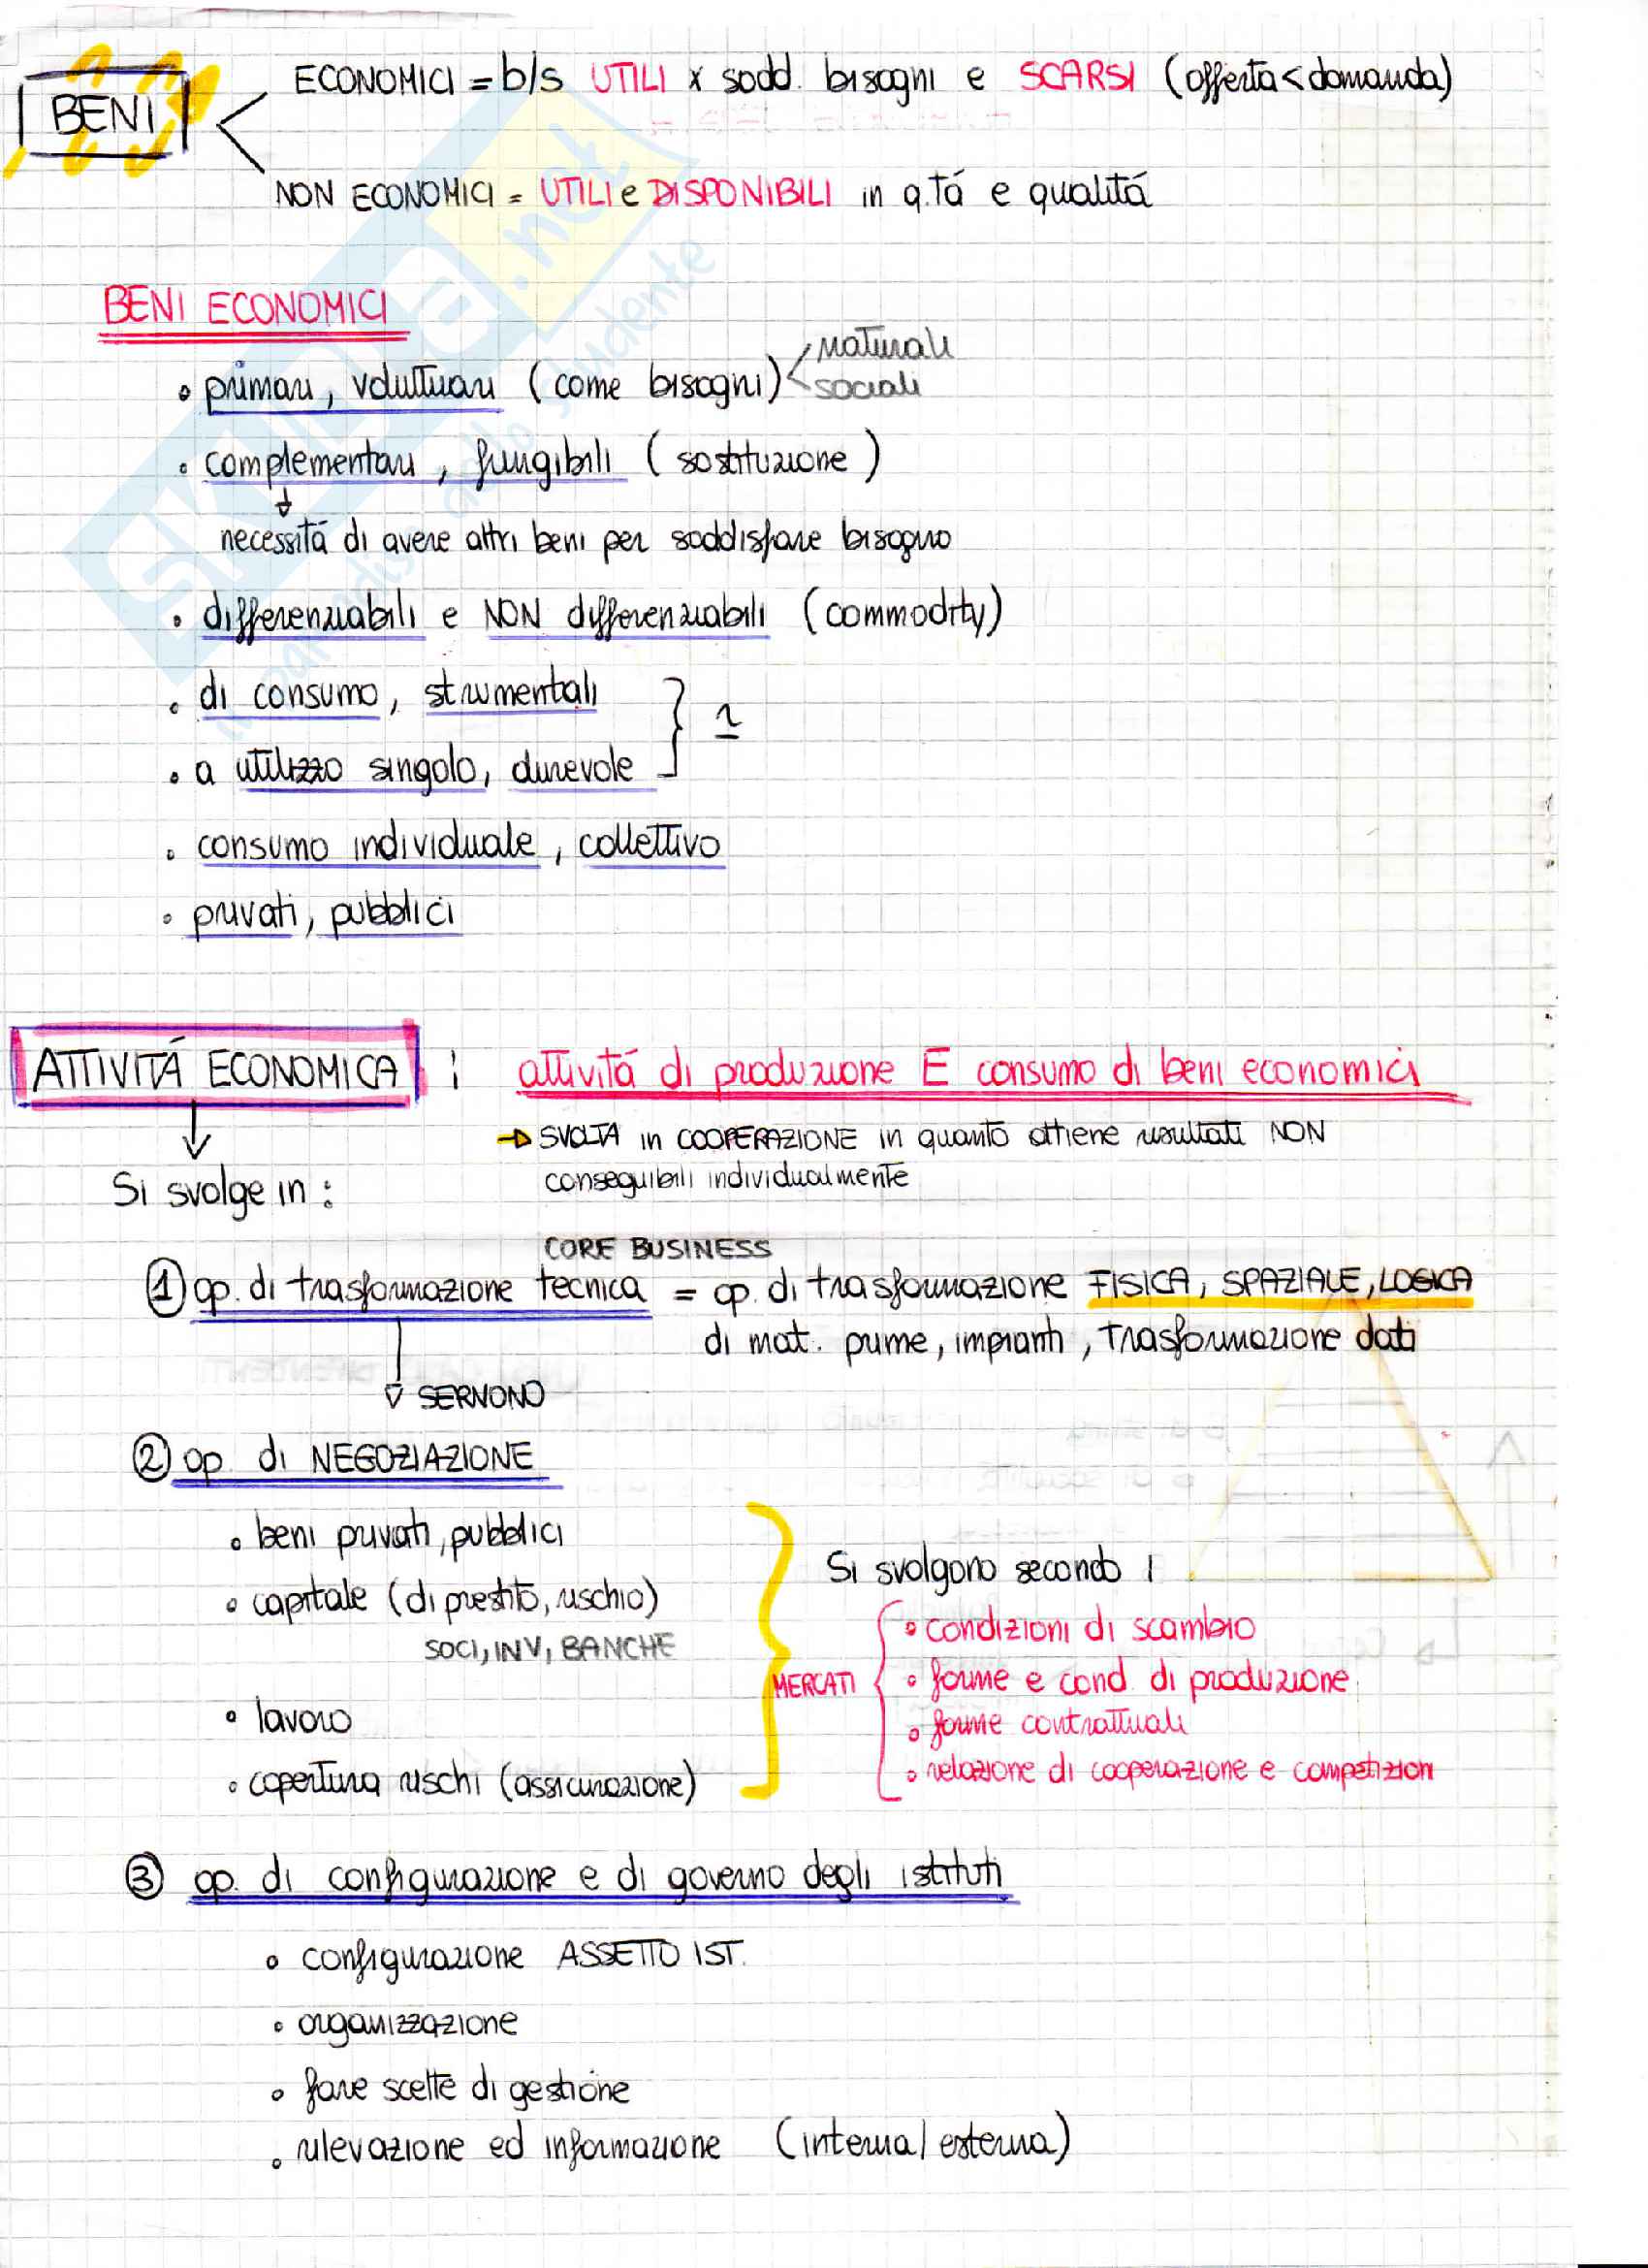 BENI
ECONOMICI = b/s UTILI x sodd. bisogni e SCARSI (offerta < domanda)
NON ECONOMICI = UTILI e DISPONIBILI in q.tá e qualitá
BENI ECONOMICI
• primari, voluttuari (come bisogni) naturali
sociali
• complementari, fungibili (sostituzione)
necessitá di avere altri beni per soddisfare bisogno
• differenziabili e NON differenziabili (commodity)
• di consumo, strumentali
• a utilizzo singolo, durevole
• consumo individuale, collettivo
• privati, pubblici
ATTIVITÁ ECONOMICA : attivitá di produzione E consumo di beni economici
→ SVOLTA in COOPERAZIONE in quanto ottiene risultati NON
conseguibili individualmente
Si svolge in :
CORE BUSINESS
① op. di trasformazione tecnica = op. di trasformazione FISICA, SPAZIALE, LOGICA
di mat. prime, impianti, trasformazione dati
SERVONO
② op. di NEGOZIAZIONE
• beni privati, pubblici
• capitale (di prestito, rischio)
SOCI, INV, BANCHE
• lavoro
• copertura rischi (assicurazione)
MERCATI
Si svolgono secondo
• condizioni di scambio
• forme e cond. di produzione
• forme contrattuali
• relazione di cooperazione e competizion
③ op. di configurazione e di governo degli istituti
• configurazione ASSETTO IST.
• organizzazione
• fare scelte di gestione
• rilevazione ed informazione (interna/esterna)
SKUOLA.net
il paradiso dello studente